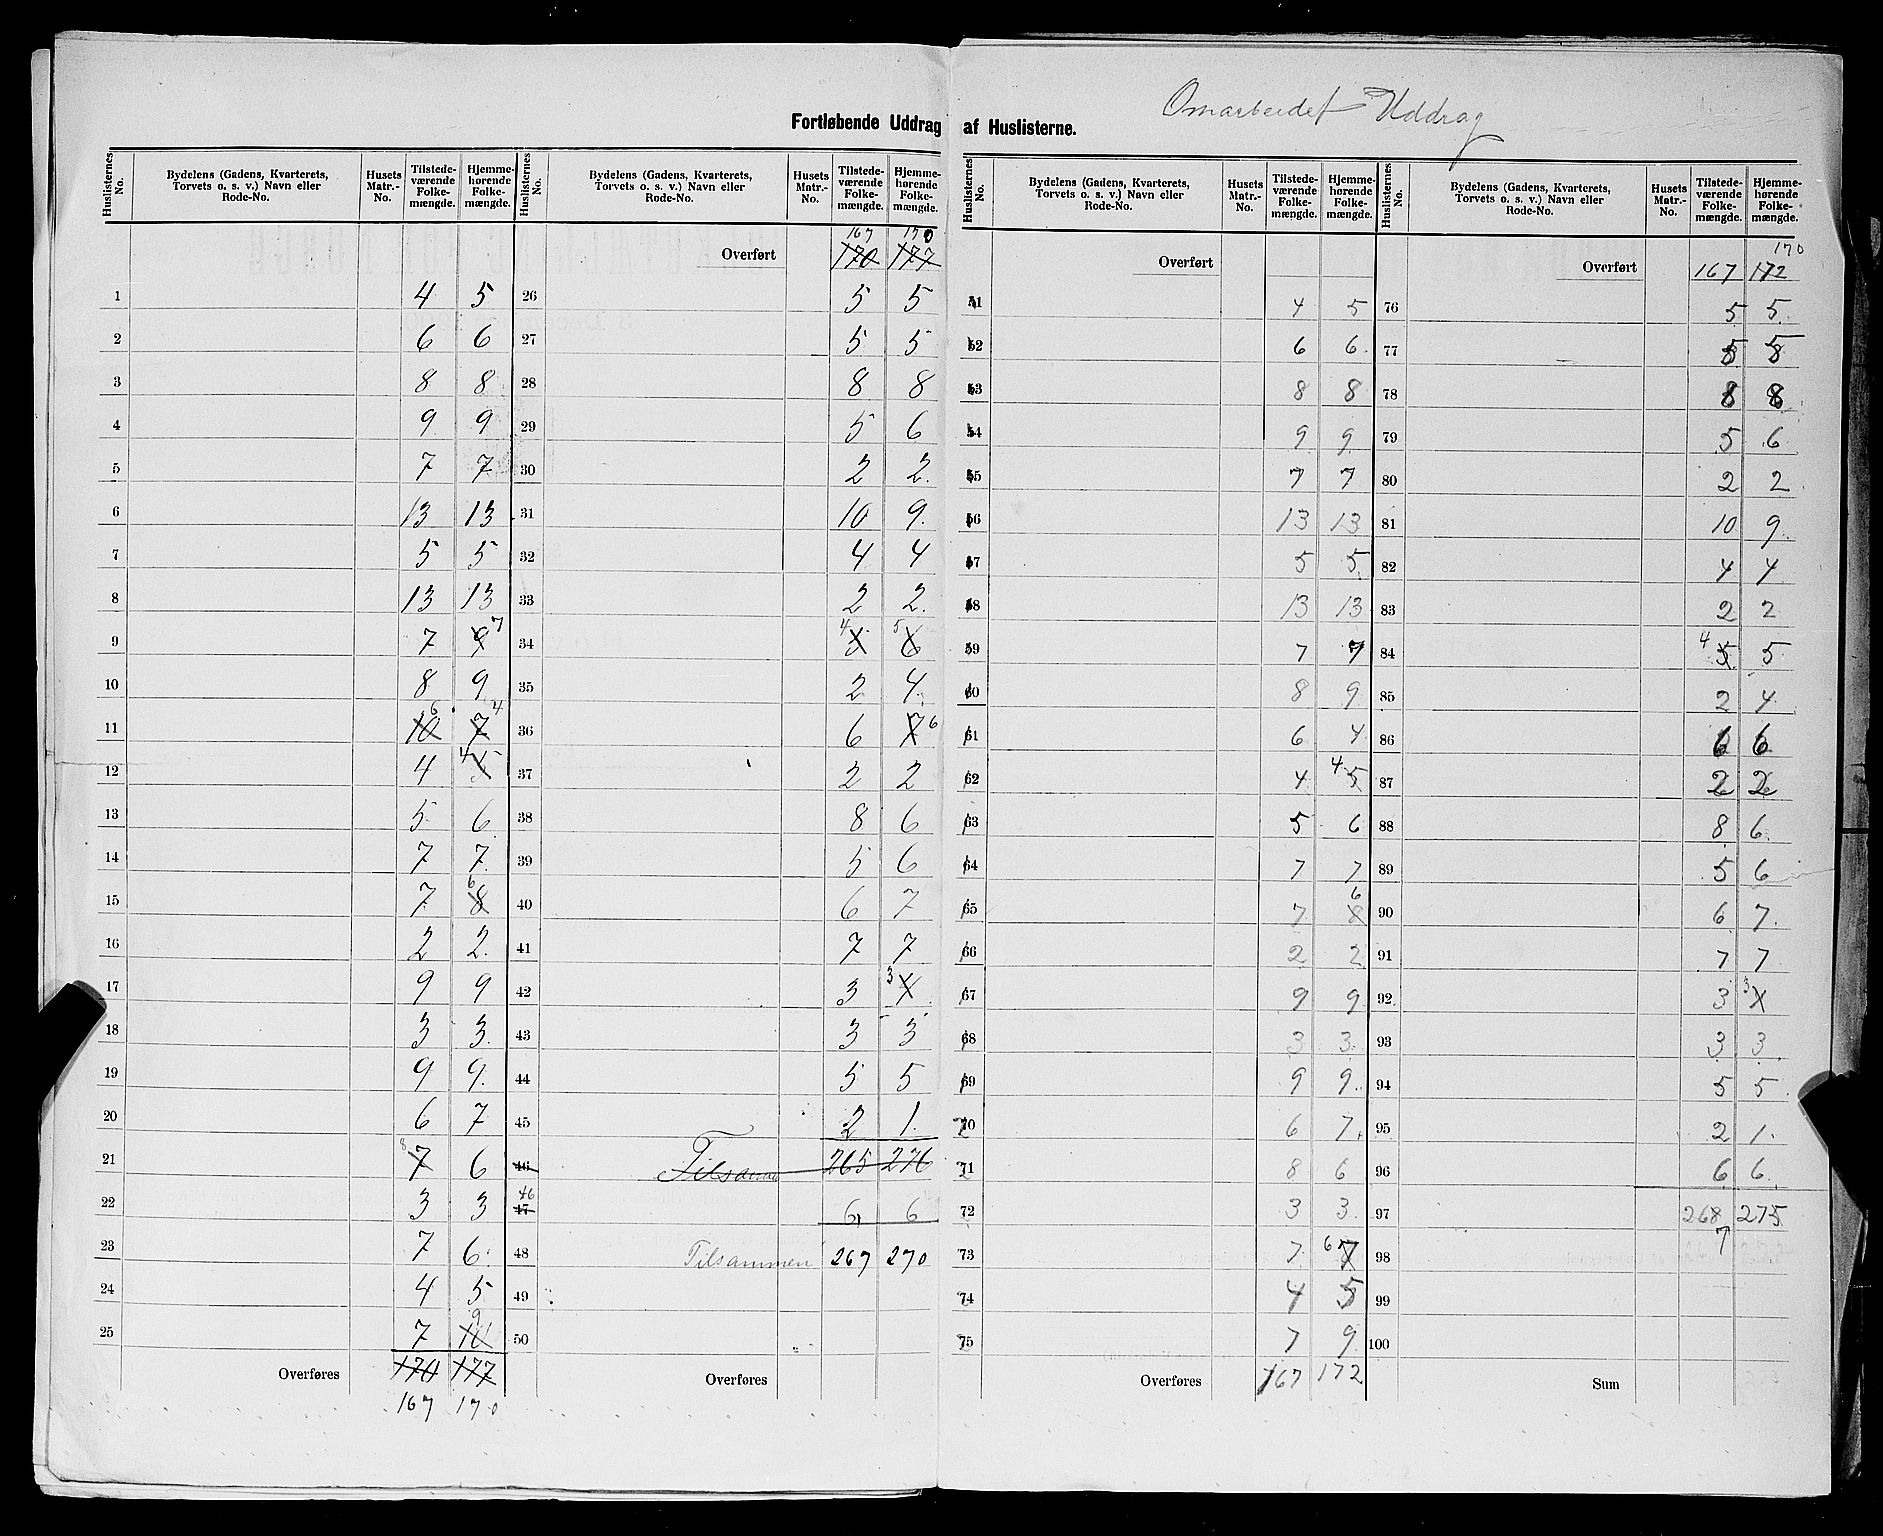 Omarbeidet Uddrag
Fortløbende Uddrag af Huslisterne.
Huslisternes No. | Bydelens (Gadens, Kvarterets, Torvets o. s. v.) Navn eller Rode-No. | Husets Matr.-No. | Tilstede-værende Folke-mængde. | Hjemme-hørende Folke-mængde.
1 4 5
2 6 6
3 8 8
4 9 9
5 7 7
6 13 13
7 5 5
8 13 13
9 7 9 7
10 8 9
11 10 6 7 4
12 4 4 5
13 5 6
14 7 7
15 7 6 8
16 2 2
17 9 9
18 3 3
19 9 9
20 6 7
21 8 7 6
22 3 3
23 7 6
24 4 5
25 7 9 10
Overføres 170 177
167 170
Huslisternes No. | Bydelens (Gadens, Kvarterets, Torvets o. s. v.) Navn eller Rode-No. | Husets Matr.-No. | Tilstede-værende Folke-mængde. | Hjemme-hørende Folke-mængde.
167 170
Overført 170 177
26 5 5
27 5 5
28 8 8
29 5 6
30 2 2
31 10 9
32 4 4
33 2 2
34 4 5 5 6
35 2 4
36 6 7 6
37 2 2
38 8 6
39 5 6
40 6 7
41 7 7
42 3 3 4
43 3 3
44 5 5
45 2 1
46 Tilsammen 265 276
46 47 6 6
48 Tilsammen 267 270
49
50
Overføres
Huslisternes No. | Bydelens (Gadens, Kvarterets, Torvets o. s. v.) Navn eller Rode-No. | Husets Matr.-No. | Tilstede-værende Folke-mængde. | Hjemme-hørende Folke-mængde.
Overført
51 4 5
52 6 6
53 8 8
54 9 9
55 7 7
56 13 13
57 5 5
58 13 13
59 7 7
60 8 9
61 6 4
62 4 4 5
63 5 6
64 7 7
65 7 6 8
66 2 2
67 9 9
68 3 3
69 9 9
70 6 7
71 8 6
72 3 3
73 7 6 7
74 4 5
75 7 9
Overføres 167 172
Huslisternes No. | Bydelens (Gadens, Kvarterets, Torvets o. s. v.) Navn eller Rode-No. | Husets Matr.-No. | Tilstede-værende Folke-mængde. | Hjemme-hørende Folke-mængde.
170
Overført 167 172
76 5 5
77 5 5
78 8 8
79 5 6
80 2 2
81 10 9
82 4 4
83 2 2
84 4 5 5
85 2 4
86 6 6
87 2 2
88 8 6
89 5 6
90 6 7
91 7 7
92 3 3 4
93 3 3
94 5 5
95 2 1
96 6 6
97 268 275
98 7
99
100
Sum